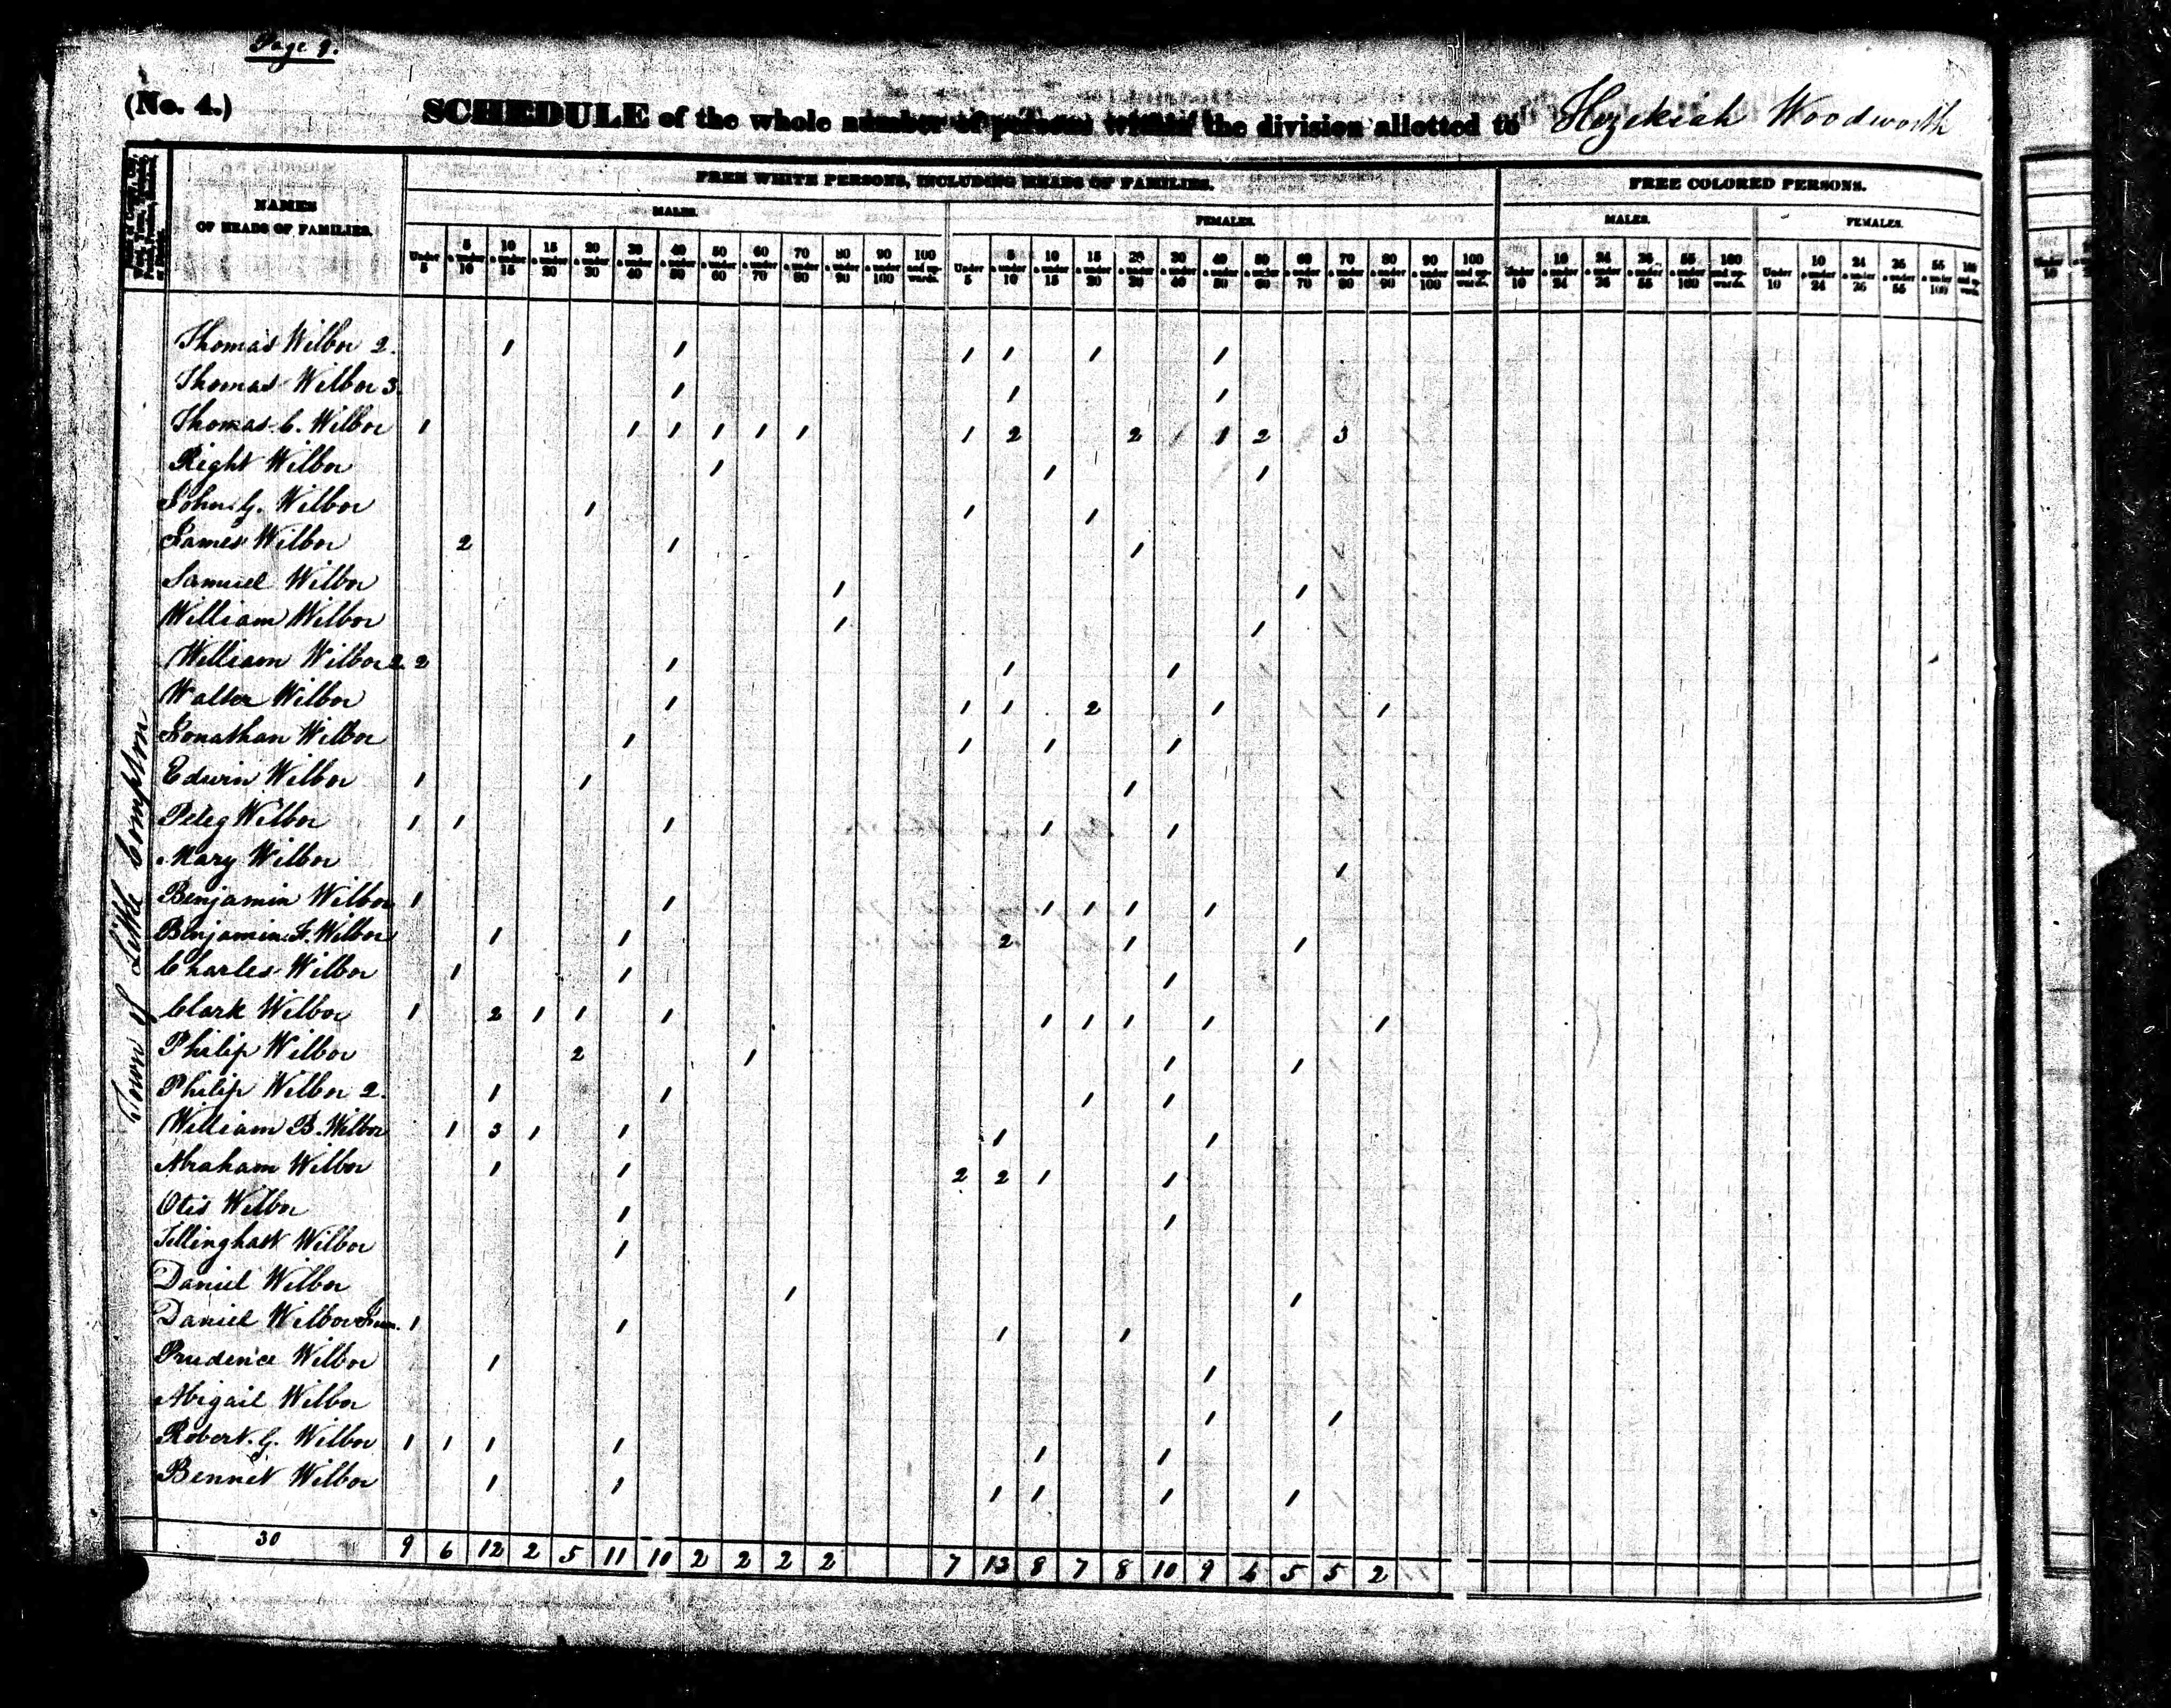 Page 9.
(No. 4.) SCHEDULE of the whole number of persons within the division allotted to Hezekiah Woodworth
NAMES OF HEADS OF FAMILIES.
FREE WHITE PERSONS, INCLUDING HEADS OF FAMILIES.
FREE COLORED PERSONS.
MALES. FEMALES. MALES. FEMALES.
Under 5 | 5 & under 10 | 10 & under 15 | 15 & under 20 | 20 & under 30 | 30 & under 40 | 40 & under 50 | 50 & under 60 | 60 & under 70 | 70 & under 80 | 80 & under 90 | 90 & under 100 | 100 and upwards. | Under 5 | 5 & under 10 | 10 & under 15 | 15 & under 20 | 20 & under 30 | 30 & under 40 | 40 & under 50 | 50 & under 60 | 60 & under 70 | 70 & under 80 | 80 & under 90 | 90 & under 100 | 100 and upwards. | Under 10 | 10 & under 24 | 24 & under 36 | 36 & under 55 | 55 & under 100 | 100 and upwards. | Under 10 | 10 & under 24 | 24 & under 36 | 36 & under 55 | 55 & under 100 | 100 and upwards.
Town of Little Compton
Thomas Wilbor 2. 1 1 1 1 1 1
Thomas Wilbor 3. 1 1 1
Thomas C. Wilbor 1 1 1 1 1 1 1 2 2 1 1 2 3
Right Wilbor 1 1 1
John G. Wilbor 1 1 1
James Wilbor 2 1 1
Samuel Wilbor 1 1
William Wilbor 1 1
William Wilbor 2. 2 1 1 1
Walter Wilbor 1 1 1 2 1 1
Jonathan Wilbor 1 1 1 1
Edwin Wilbor 1 1 1
Peleg Wilbor 1 1 1 1 1
Mary Wilbor 1
Benjamin Wilbor 1 1 1 1 1 1
Benjamin F. Wilbor 1 1 2 1 1
Charles Wilbor 1 1 1
Clark Wilbor 1 2 1 1 1 1 1 1 1 1
Philip Wilbor 2 1 1 1
Philip Wilbor 2. 1 1 1 1
William B. Wilbor 1 3 1 1 1 1
Abraham Wilbor 1 1 2 2 1 1
Otis Wilbor 1 1
Tillinghast Wilbor 1
Daniel Wilbor 1 1
Daniel Wilbor Jun. 1 1 1 1
Prudence Wilbor 1 1
Abigail Wilbor 1 1
Robert G. Wilbor 1 1 1 1 1 1
Bennet Wilbor 1 1 1 1 1 1
30 9 6 12 2 5 11 10 2 2 2 2 7 13 8 7 8 10 9 6 5 5 2